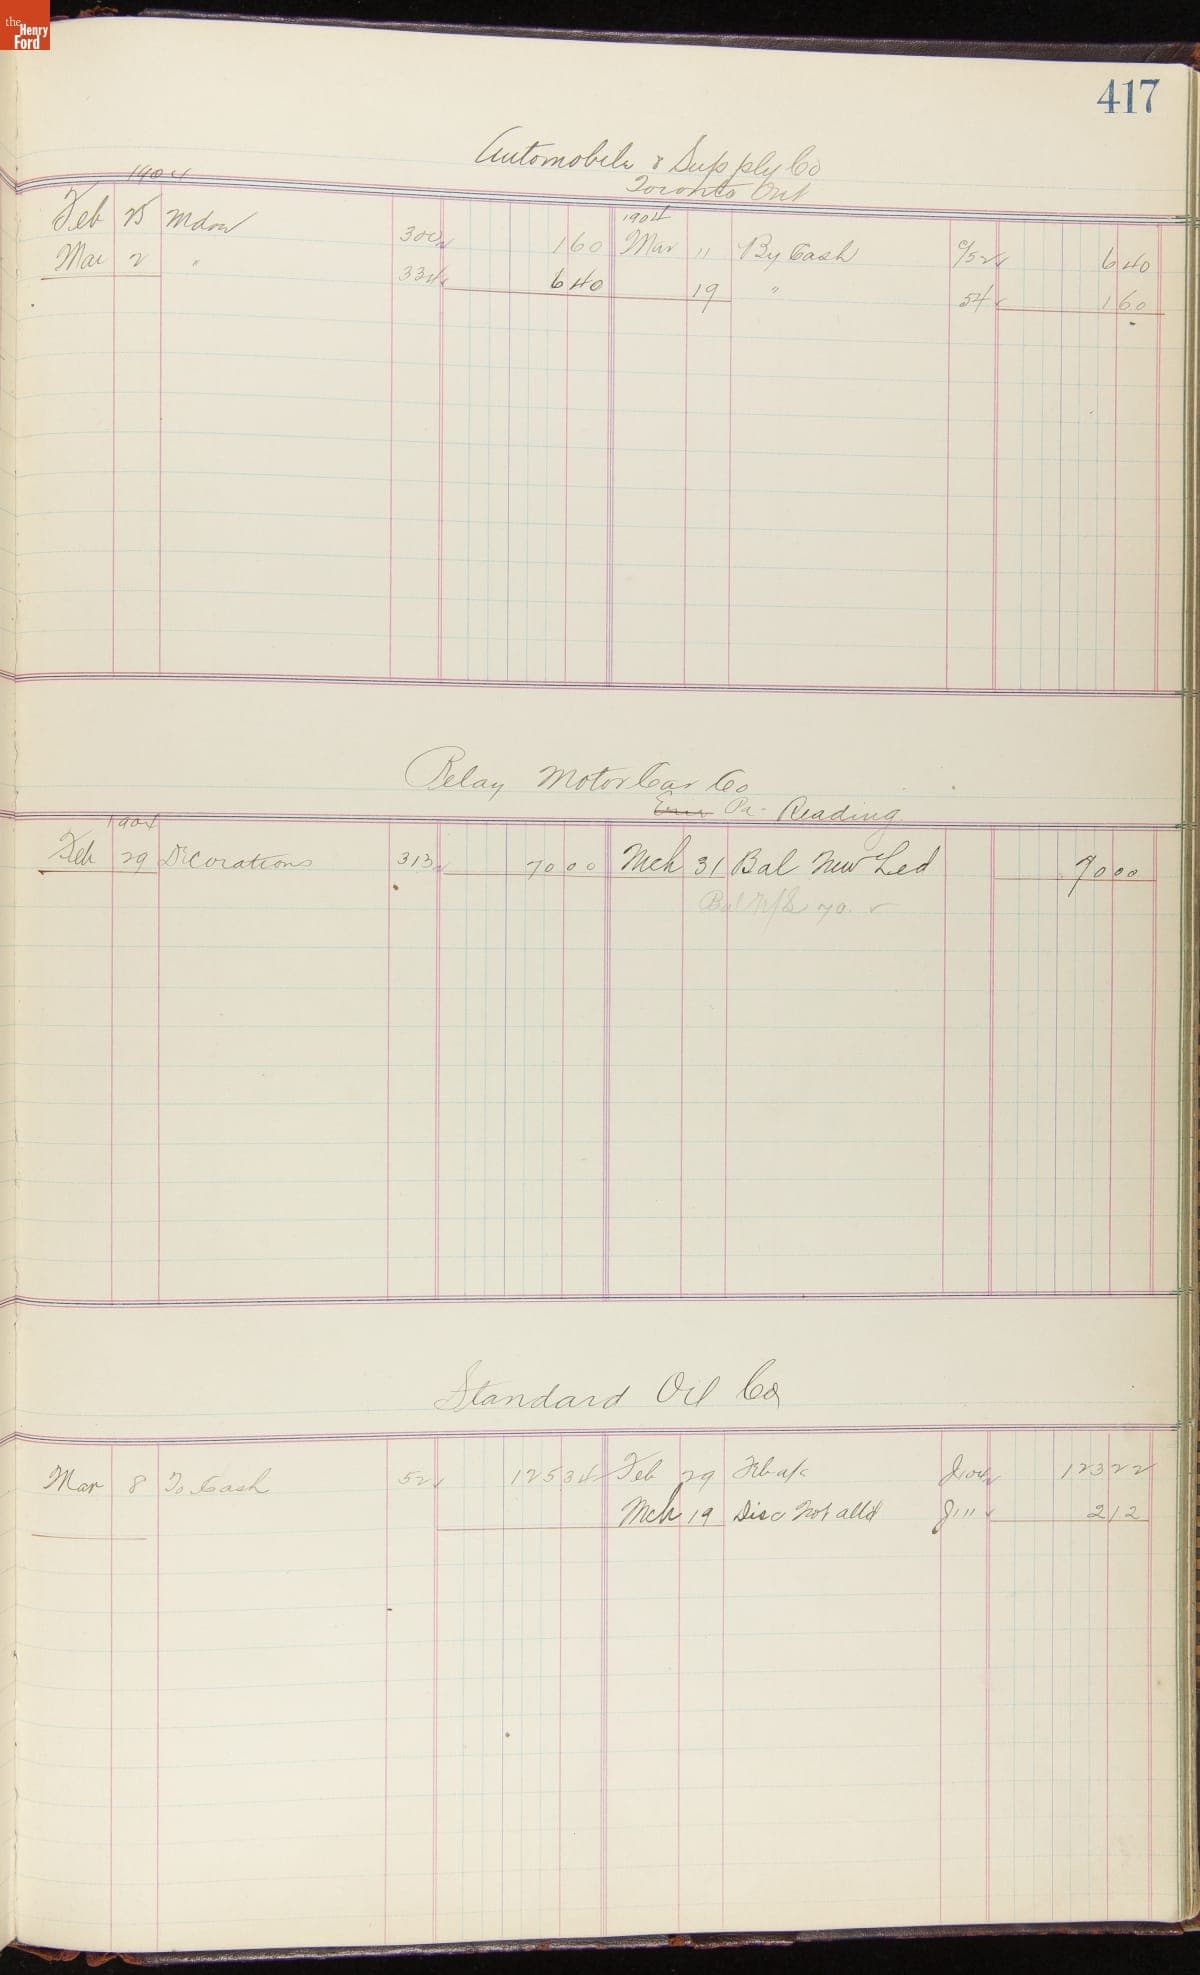 the Henry Ford
417
Automobile & Supply Co
Toronto Ont
1904
1904
Feb 25 Mdse 300 160 Mar 11 By Cash C/52 640
Mar 2 " 334 640 19 " 54 160
Relay Motor Car Co
Erie Pa - Reading
1904
Feb 29 Decorations 313 7000 Mch 31 Bal New Led 7000
Bal N/L 70
Standard Oil Co
Mar 8 To Cash 52 12534 Feb 29 Feb a/c J104 12322
Mch 19 Disc Not all'd J111 212